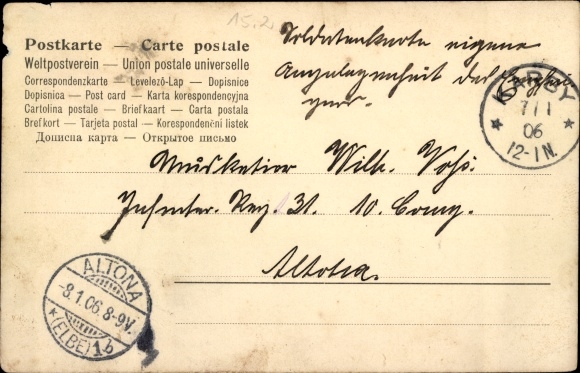 15.2
Postkarte — Carte postale
Weltpostverein — Union postale universelle
Correspondenzkarte — Levelező-Lap — Dopisnice
Dopisnica — Post card — Karta korespondencyjna
Cartolina postale — Briefkaart — Carta postala
Brefkort — Tarjeta postal — Korespondenční listek
Дописна карта — Открытое письмо
Soldatenkarte eigene
Angelegenheit des
KARBY
7/1
06
12-1N.
Musketier Wilh. Voß.
Infanter. Reg. 31. 10. Comp.
Altona.
ALTONA
-8.1.06.8-9V.
*(ELBE)1b